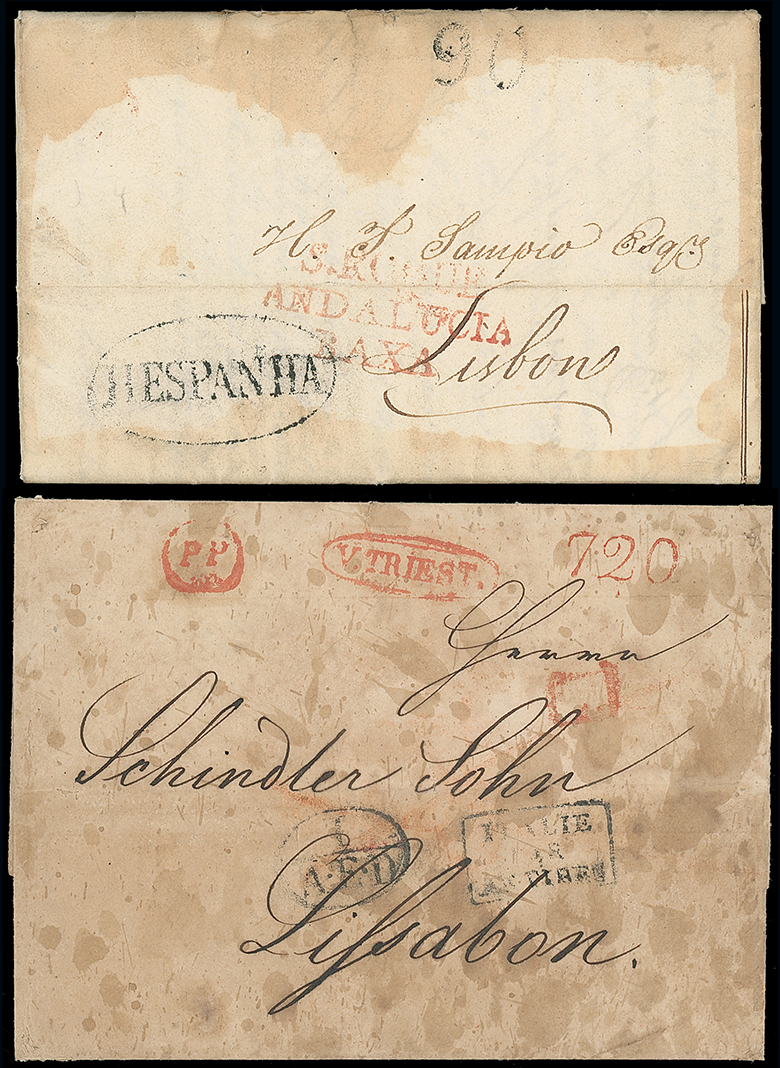 90
H. T. Sampio Esqr
S. ROQUE
ANDALUCIA
BAXA
Lisbon
HESPANHA
PP
V. TRIEST.
720
Herrn
Schindler Sohn
A.E.D
ITALIE
Lissabon.